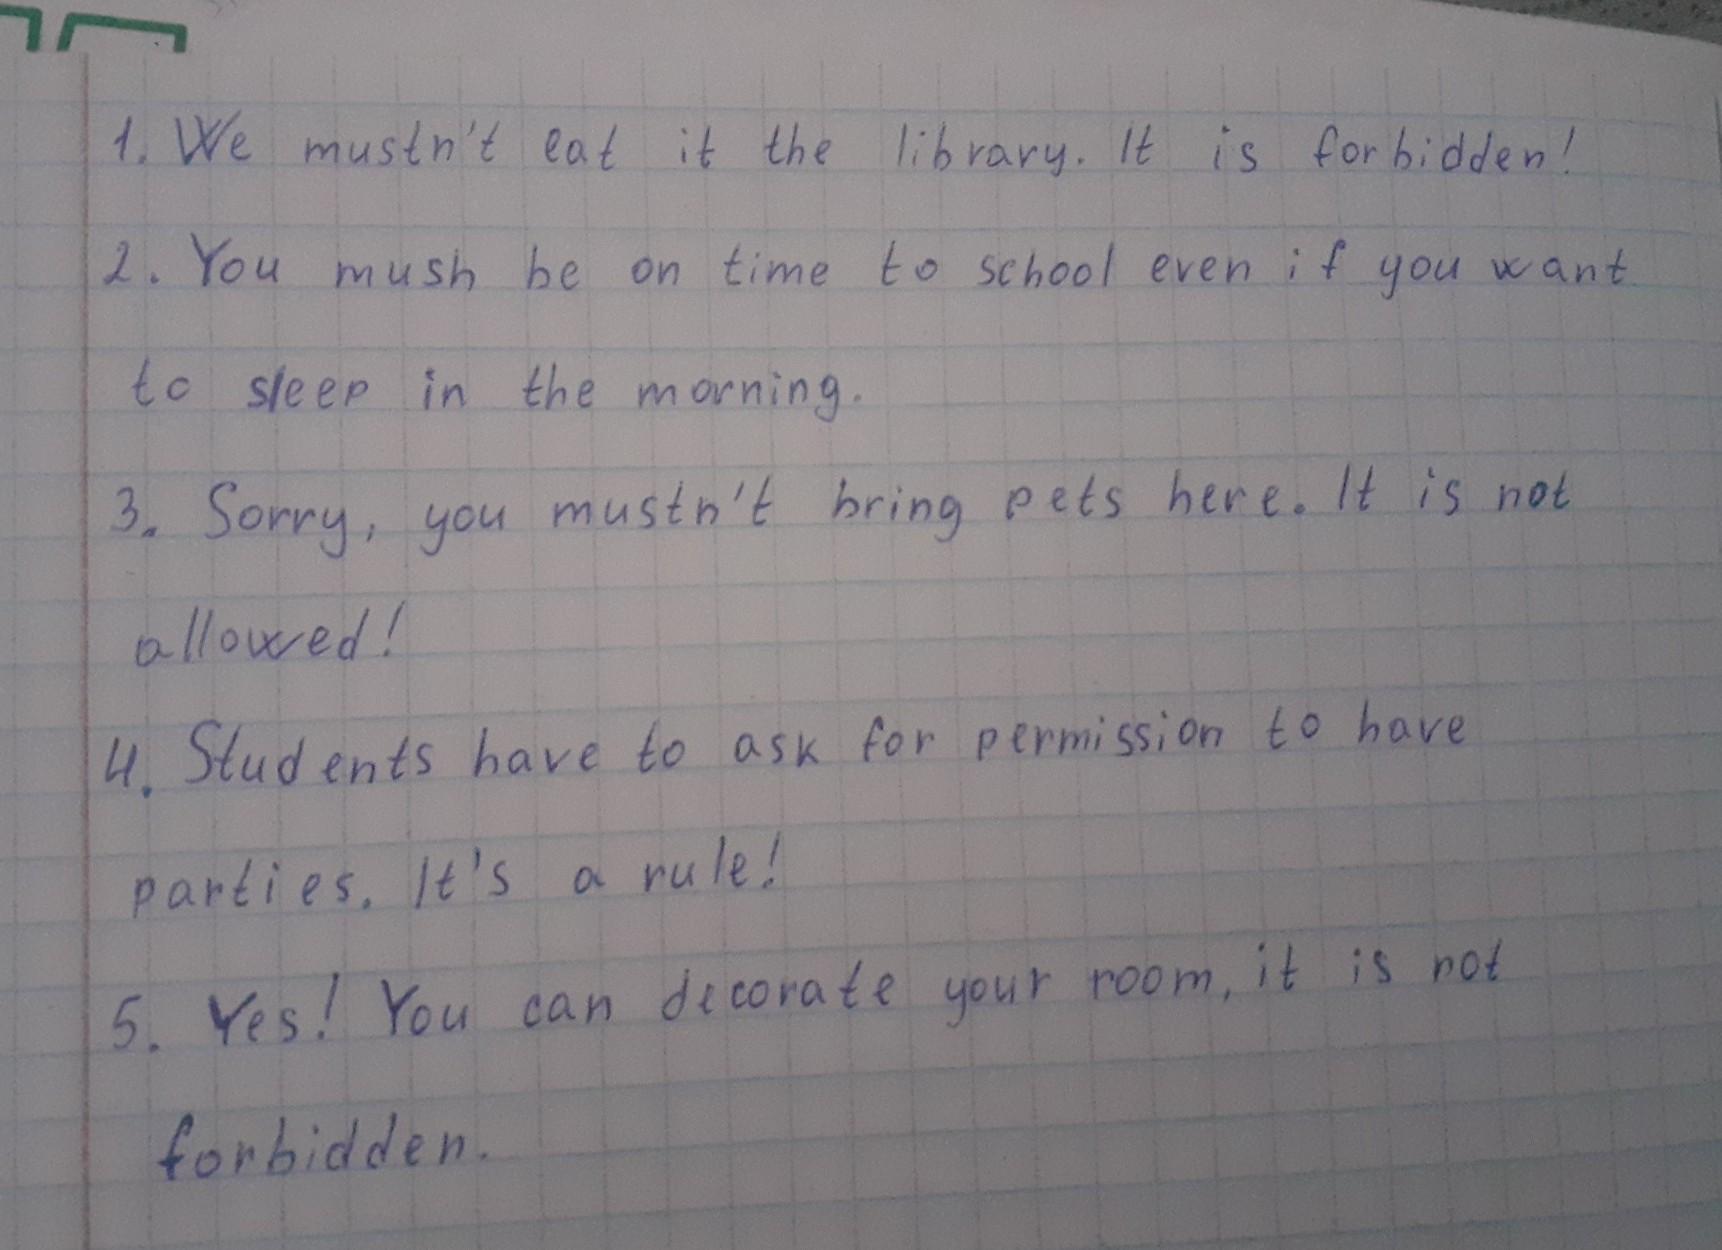 1. We mustn't eat it the library. It is forbidden!
2. You mush be on time to school even if you want
to sleep in the morning.
3. Sorry, you mustn't bring pets here. It is not
allowed!
4. Students have to ask for permission to have
parties. It's a rule!
5. Yes! You can decorate your room, it is not
forbidden.